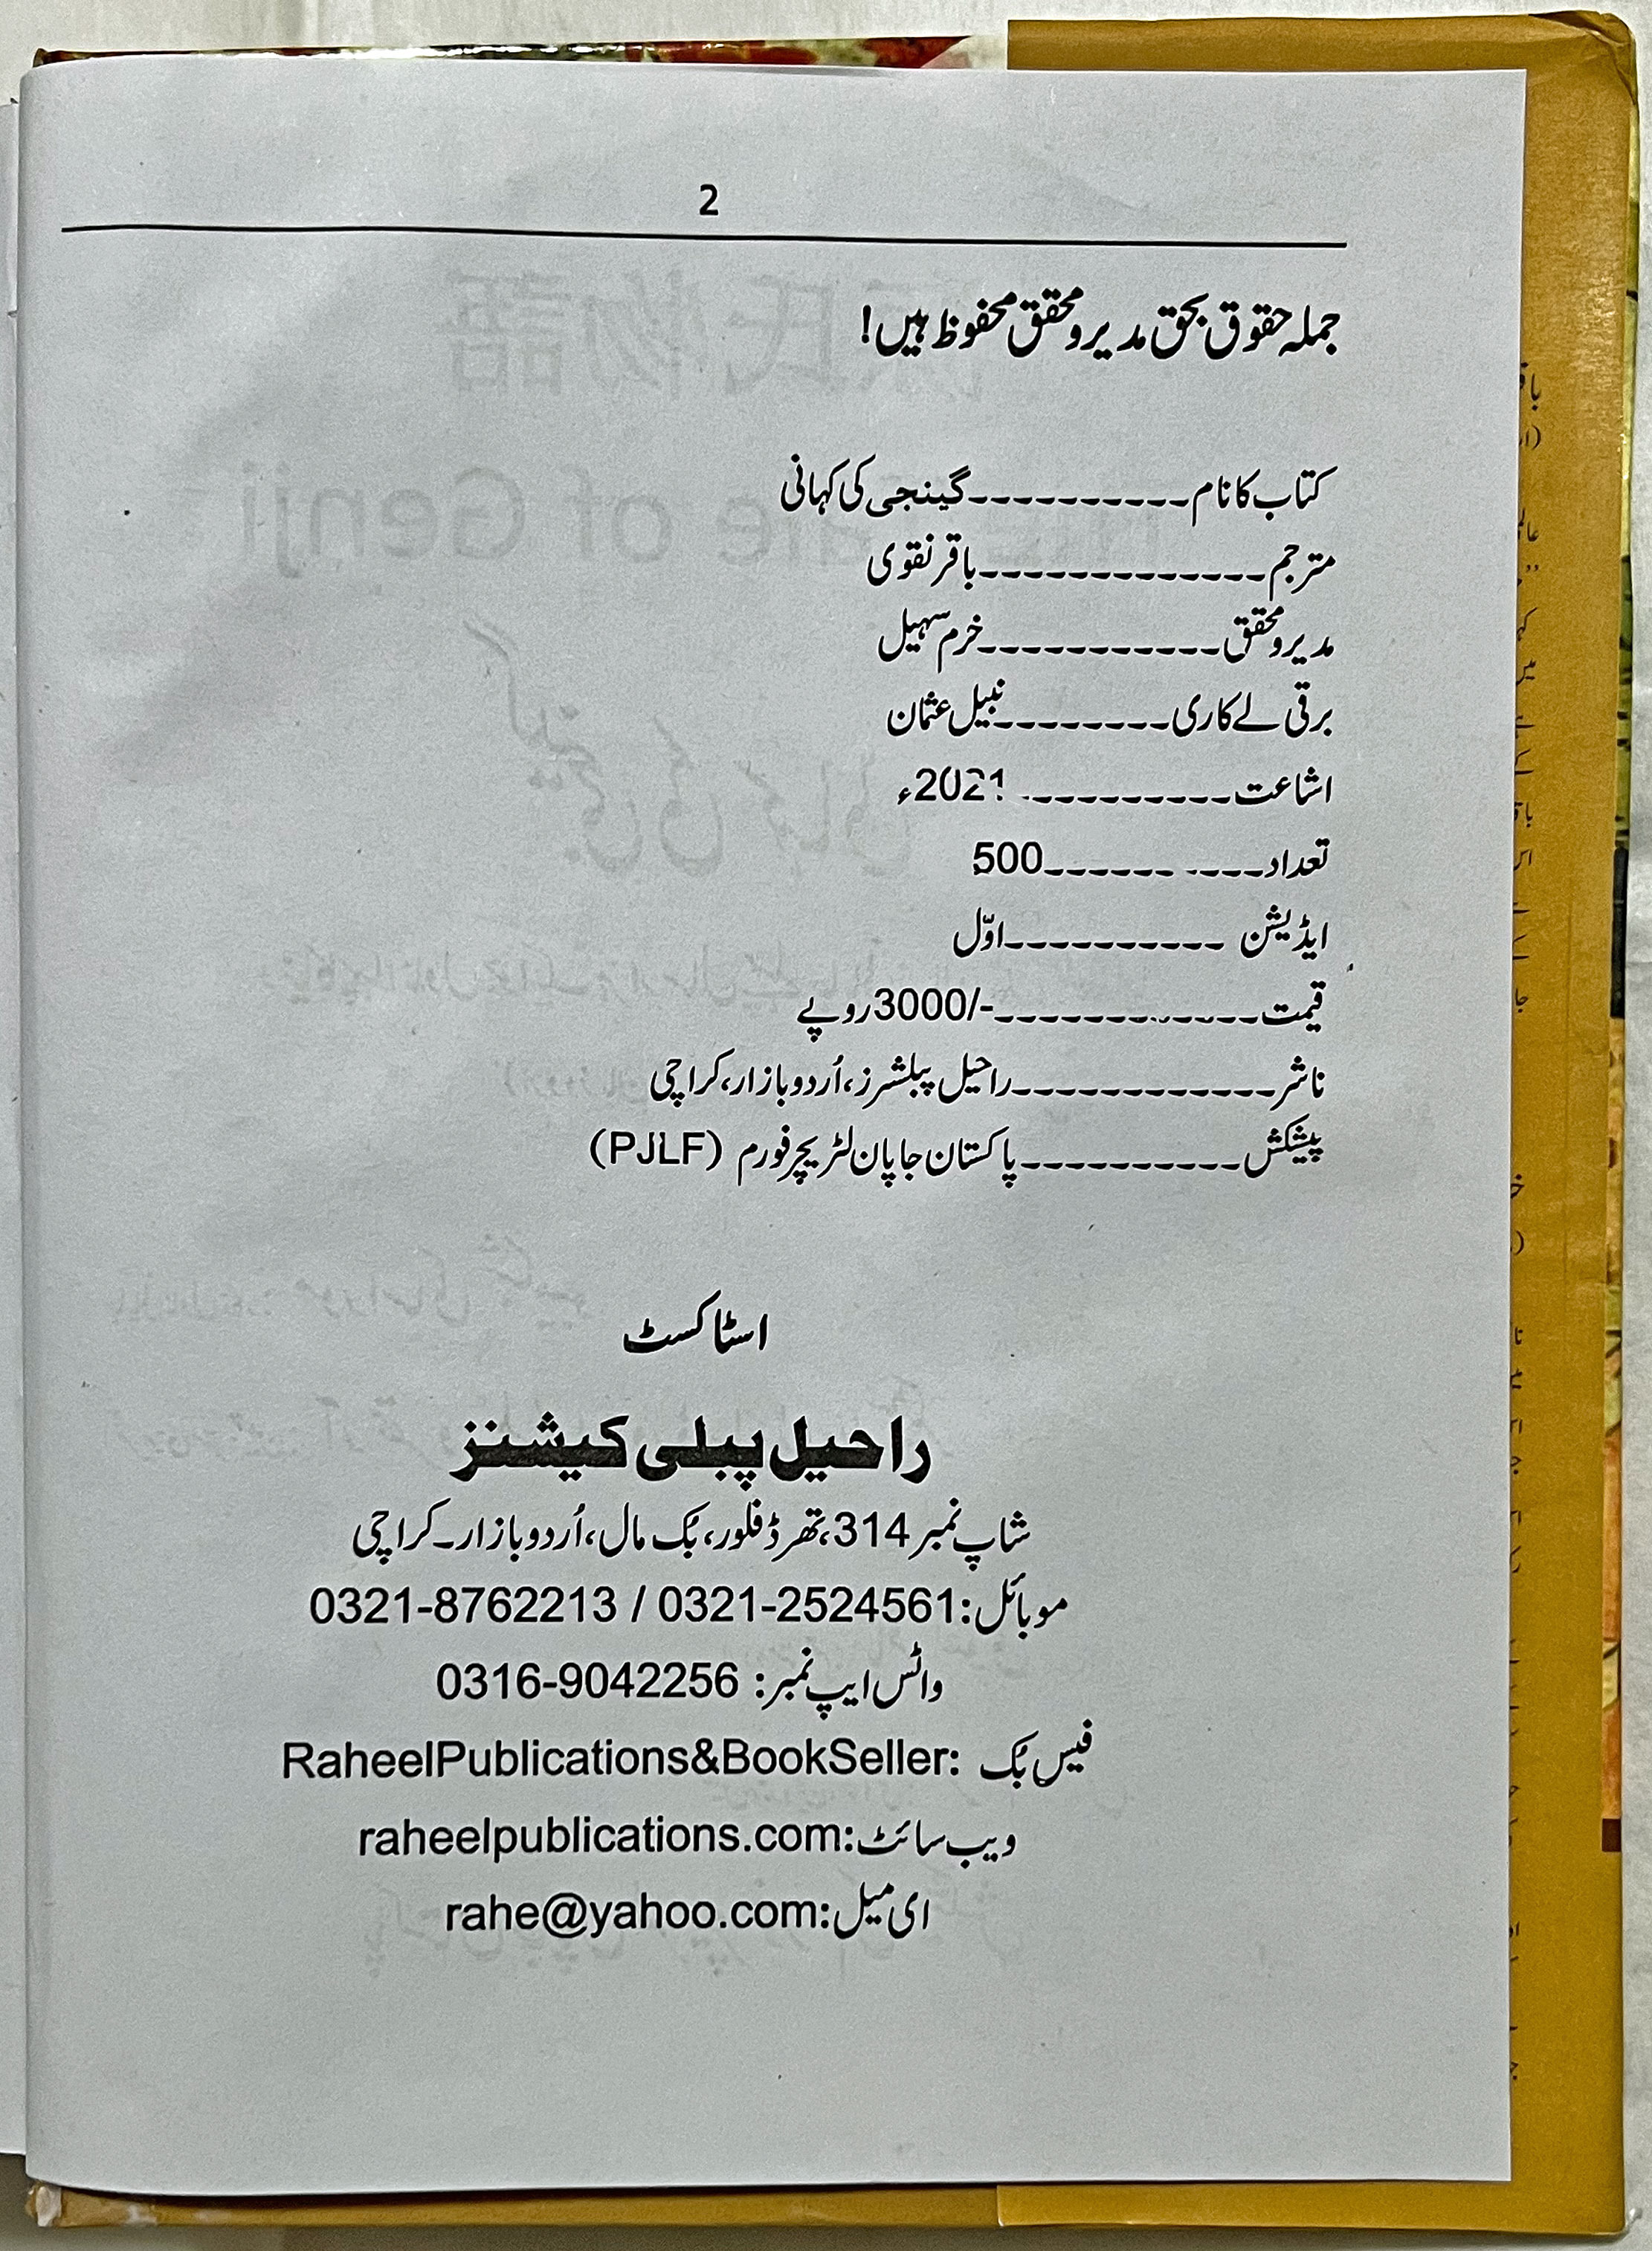 2
جملہ حقوق بحق مدیر و محقق محفوظ ہیں!
کتاب کا نام۔۔۔۔۔۔۔۔۔۔گینجی کی کہانی
مترجم۔۔۔۔۔۔۔۔۔۔۔۔۔باقر نقوی
مدیر و محقق۔۔۔۔۔۔۔۔۔۔۔خرم سہیل
برقی لے کاری۔۔۔۔۔۔۔۔نبیل عثمان
اشاعت۔۔۔۔۔۔۔۔۔۔ 2021ء
تعداد۔۔۔۔ ۔۔۔۔۔۔500
ایڈیشن ۔۔۔۔۔۔۔۔۔۔اوّل
قیمت۔۔۔۔۔۔۔۔۔۔۔۔3000/-روپے
ناشر۔۔۔۔۔۔۔۔۔۔۔۔راحیل پبلشرز، اُردو بازار، کراچی
پیشکش۔۔۔۔۔۔۔۔۔۔پاکستان جاپان لٹریچر فورم (PJLF)
اسٹاکسٹ
راحیل پبلی کیشنز
شاپ نمبر 314، تھرڈ فلور، بُک مال، اُردو بازار۔کراچی
موبائل: 0321-8762213 / 0321-2524561
واٹس ایپ نمبر: 0316-9042256
فیس بُک: RaheelPublications&BookSeller
ویب سائٹ: raheelpublications.com
ای میل: rahe@yahoo.com